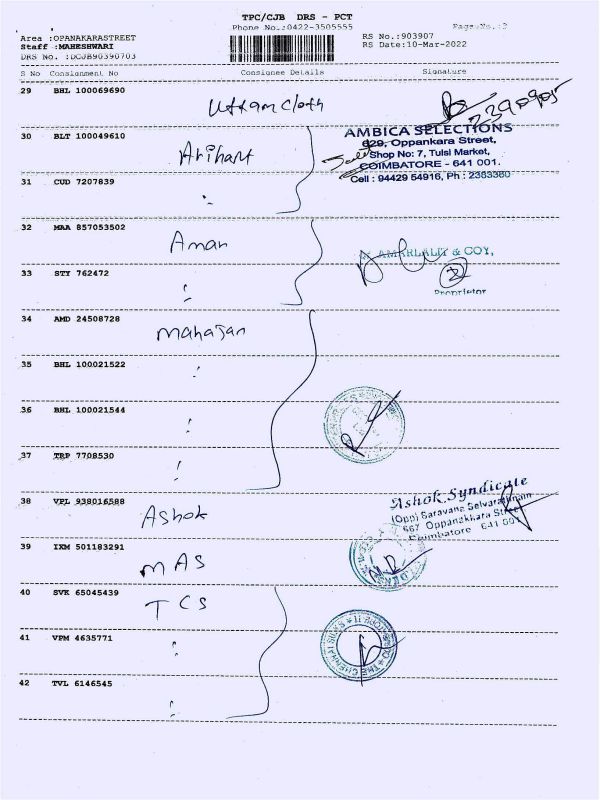 TPC/CJB DRS - PCT
Phone No.:0422-3505555
Page No.:3
Area :OPANAKARASTREET
Staff :MAHESHWARI
DRS No. :DCJB90390703
RS No.:903907
RS Date:10-Mar-2022
S No Consignment No Consignee Details Signature
29 BHL 100069690
Uttam Cloth
2390905
30 BLT 100049610
Arihant
AMBICA SELECTIONS
629, Oppankara Street,
Shop No: 7, Tulsi Market,
COIMBATORE - 641 001.
Cell : 94429 54916, Ph : 2383380
31 CUD 7207839
32 MAA 857053502
Aman
AMARLALL & COY,
Proprietor
33 STY 762472
34 AMD 24508728
Mahajan
35 BHL 100021522
36 BHL 100021544
37 TRP 7708530
38 VPL 938016588
Ashok
Ashok Syndicate
(Opp) Saravana Selvarathinam
667 Oppanakkara Street
Coimbatore 641 001
39 IXM 501183291
MAS
40 SVK 65045439
TCS
41 VPM 4635771
THE CHENNAI SILKS
42 TVL 6146545